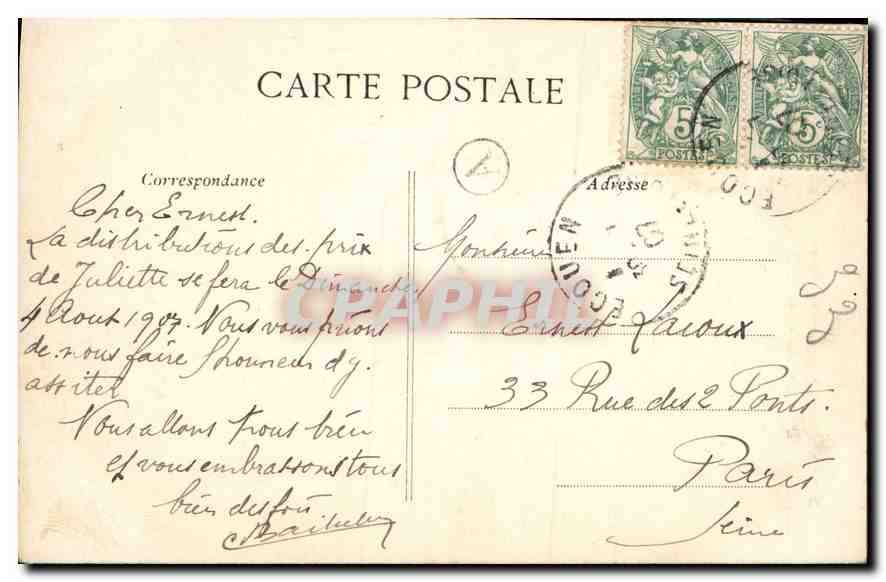 CARTE POSTALE
A
Correspondance
Adresse
Cher Ernest.
La distributions des prix
de Juliette se fera le Dimanche
4 Aout 1907. Nous vous prions
de nous faire l'honneur dy.
assiter
Nous allons tous bien
et vous embrassons tous
bien des fois
Monsieur
Ernest Lacoux
33 Rue des 2 Ponts.
Paris
Seine
5
POSTES
5
POSTES
ECOUEN
ECOUEN
CPAPHIL